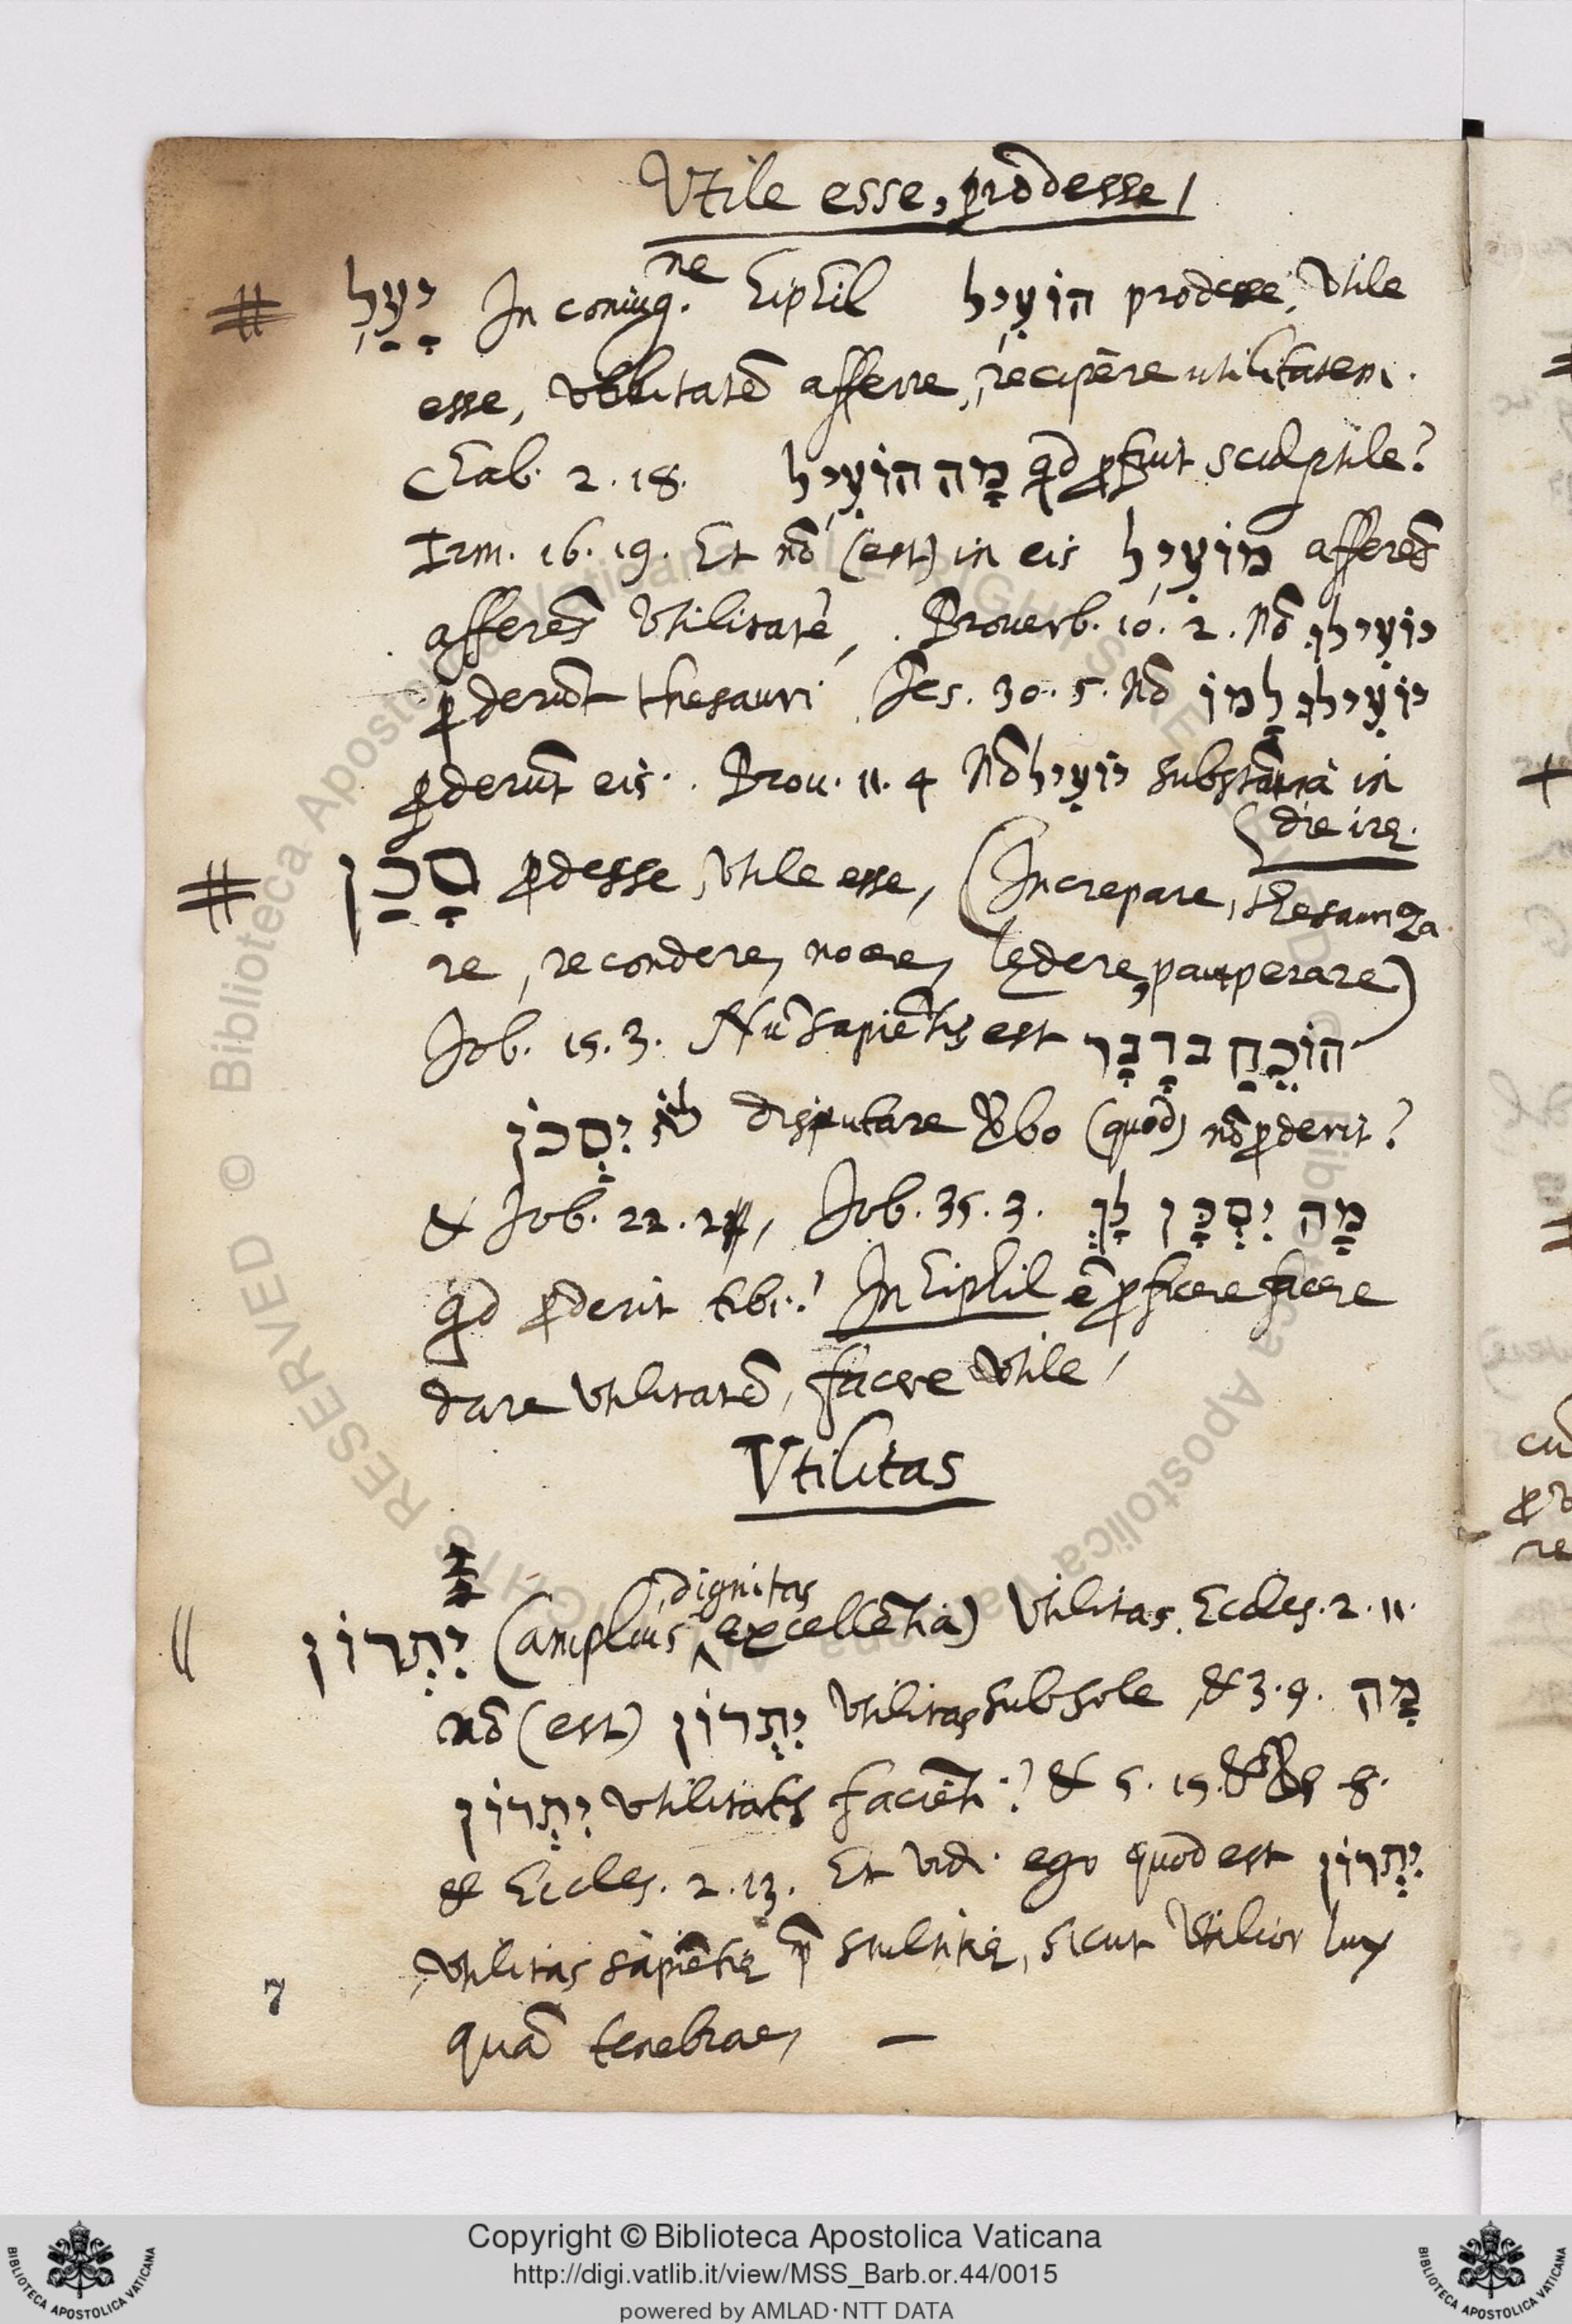 Vtile esse, prõdesse,
יָעַל In coniug.ne Hiphil הוֹעִיל prodesse, Vtile
esse, vtilitatẽ afferre, recipere utilitatem.
Chab. 2. 18. מָה הוֹעִיל qd ꝓfuit sculptile?
Irm. 16. 19. Et nõ (est) in eis מוֹעִיל afferẽs
afferẽs Vtilitatẽ, Prouerb. 10. 2. Nõ יוֹעִילוּ
ꝓderũt thesauri Jes. 30. 5. Nõ יוֹעִילוּ לָמוֹ
ꝓderũt eis. Prou. 11. 4 Nõ יוֹעִיל substãtia in
(die irę.
סָכַן ꝓdesse, Vtile esse, (Increpare, thesauriza
re, recondere, nocere, lędere, pauperare)
Job. 15. 3. Nũ sapiẽtis est הוֹכֵחַ בדָבָר
לֹא יִסְכּוֹן disputare Vbo (quod) nõ ꝓderit?
& Job. 22. 2, Job. 35. 3. מָה יִסְכָּן לָךְ
qd ꝓderit tibi? In Hiphil ẽ ꝓficere facere
dare Vtilitatẽ, facere Vtile,
Vtilitas
יִתְרוֹן (amplius, dignitas excellẽtia) Vtilitas. Eccles. 2. 11.
nõ (est) יִתְרוֹן Vtilitas sub sole, & 3. 9. מָה
יִתְרוֹן vtilitatis faciẽti? & 5. 15. 8.
& Eccles. 2. 13. Et vidi ego quod est יִתְרוֹן
Vtilitas sapiẽtię stultitię, sicut Vtilior lux
quã tenebrae, —
7
© Biblioteca Apostolica Vaticana ALL RIGHTS RESERVED
Copyright © Biblioteca Apostolica Vaticana
http://digi.vatlib.it/view/MSS_Barb.or.44/0015
powered by AMLAD·NTT DATA
BIBLIOTECA APOSTOLICA VATICANA
BIBLIOTECA APOSTOLICA VATICANA